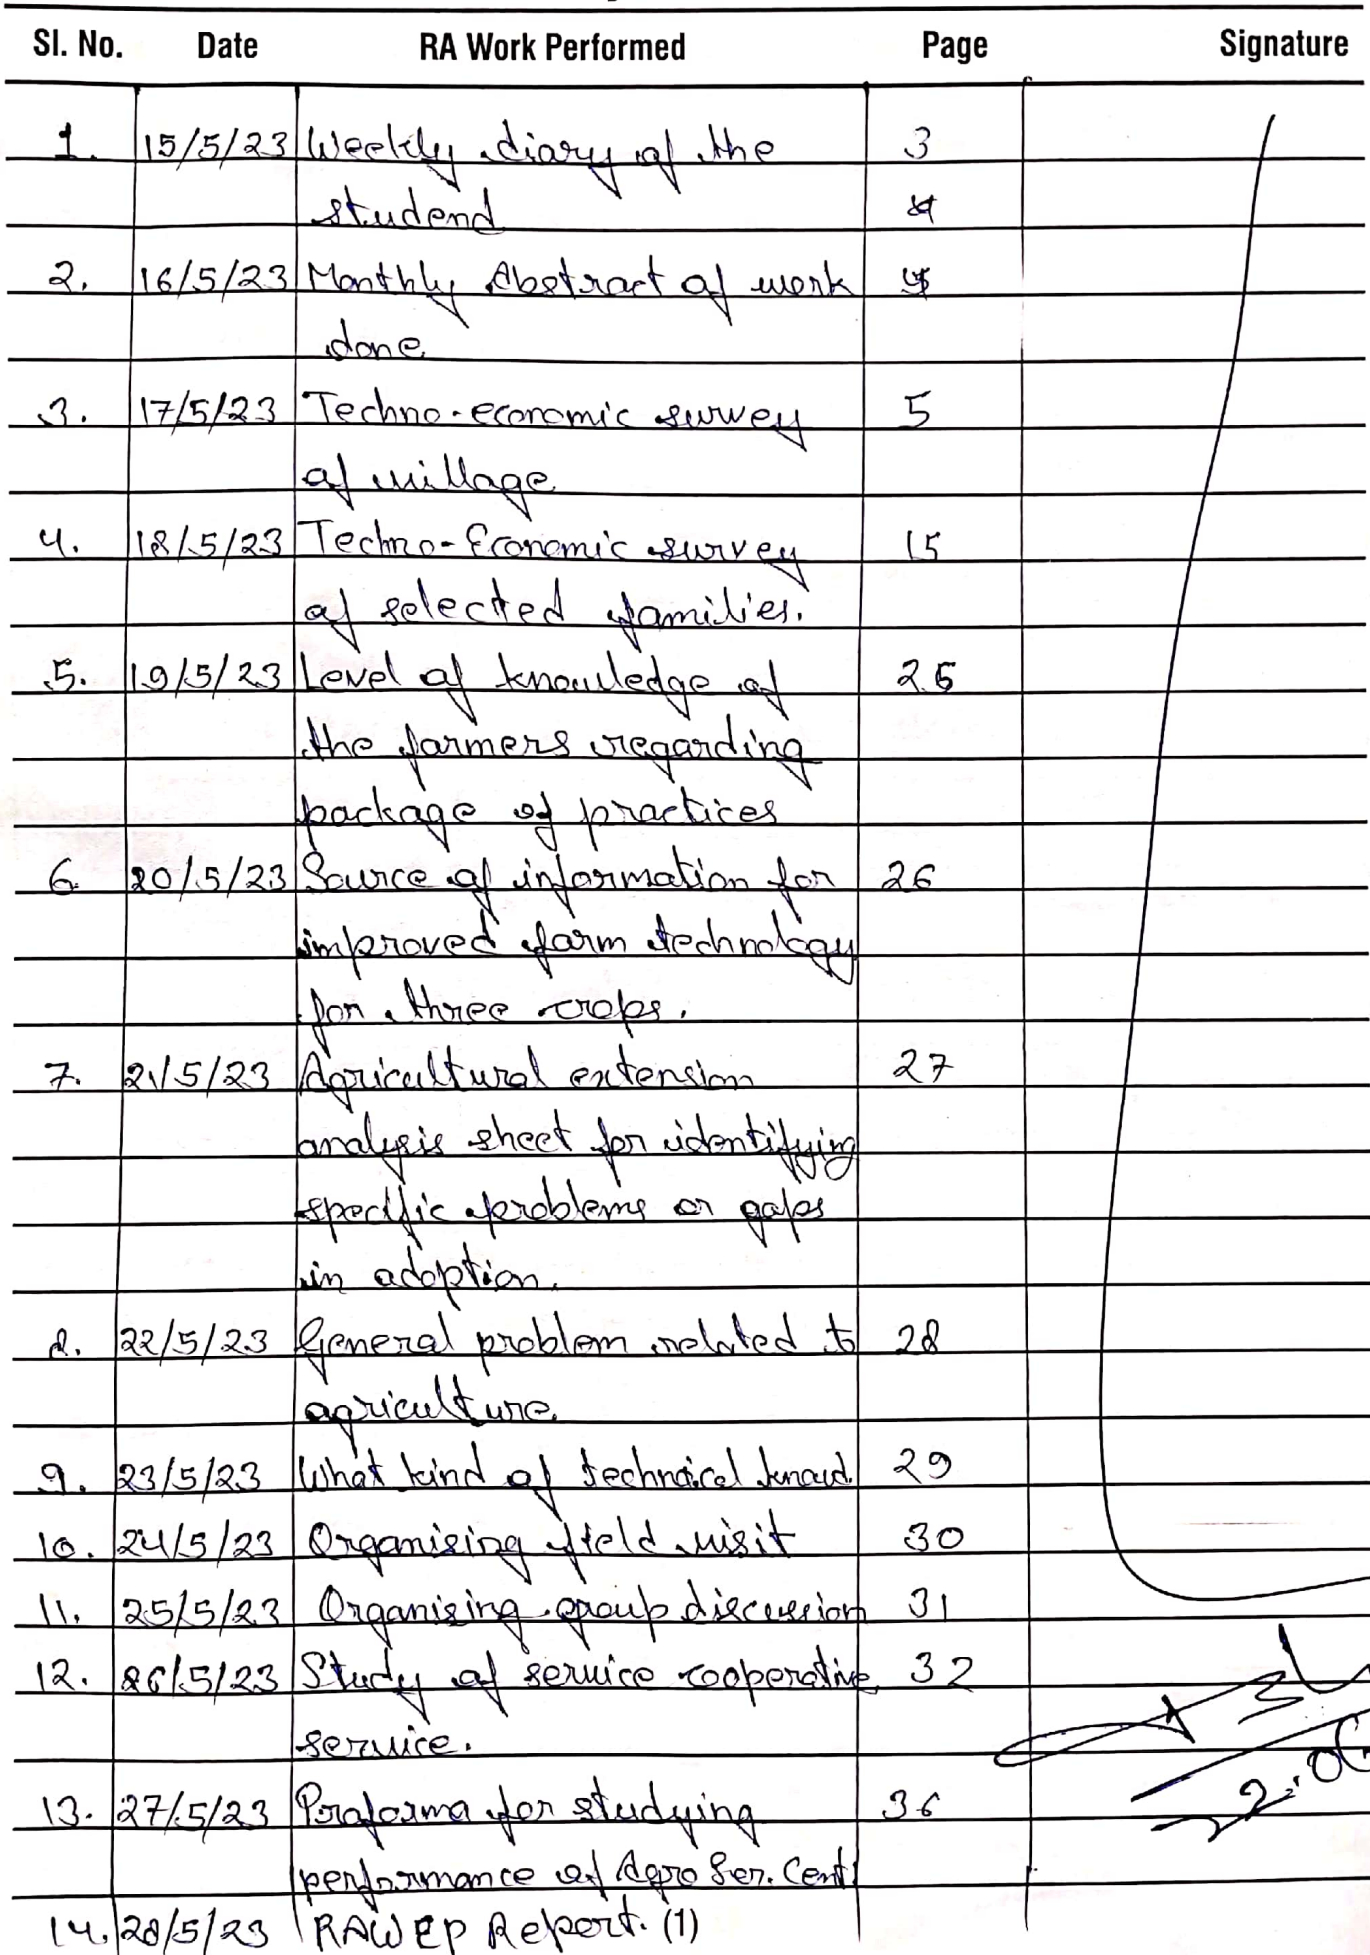 Sl. No. Date RA Work Performed Page Signature
1. 15/5/23 Weekly diary of the 3
studend
2. 16/5/23 Monthly Abstract of work 4
done
3. 17/5/23 Techno-economic survey 5
of village
4. 18/5/23 Techno-Economic survey 15
of selected families.
5. 19/5/23 Level of knowledge of 25
the farmers regarding
package of practices
6. 20/5/23 Source of information for 26
improved farm technology
for three crops.
7. 21/5/23 Agricultural extension 27
analysis sheet for identifying
specific problems or gaps
in adoption.
8. 22/5/23 General problem related to 28
agriculture.
9. 23/5/23 What kind of technical 29
10. 24/5/23 Organising field visit 30
11. 25/5/23 Organising group discussion 31
12. 26/5/23 Study of service cooperative 32
service.
13. 27/5/23 Proforma for studying 36
performance of Agro Ser. Cent
14. 28/5/23 RAWEP Report. (1)